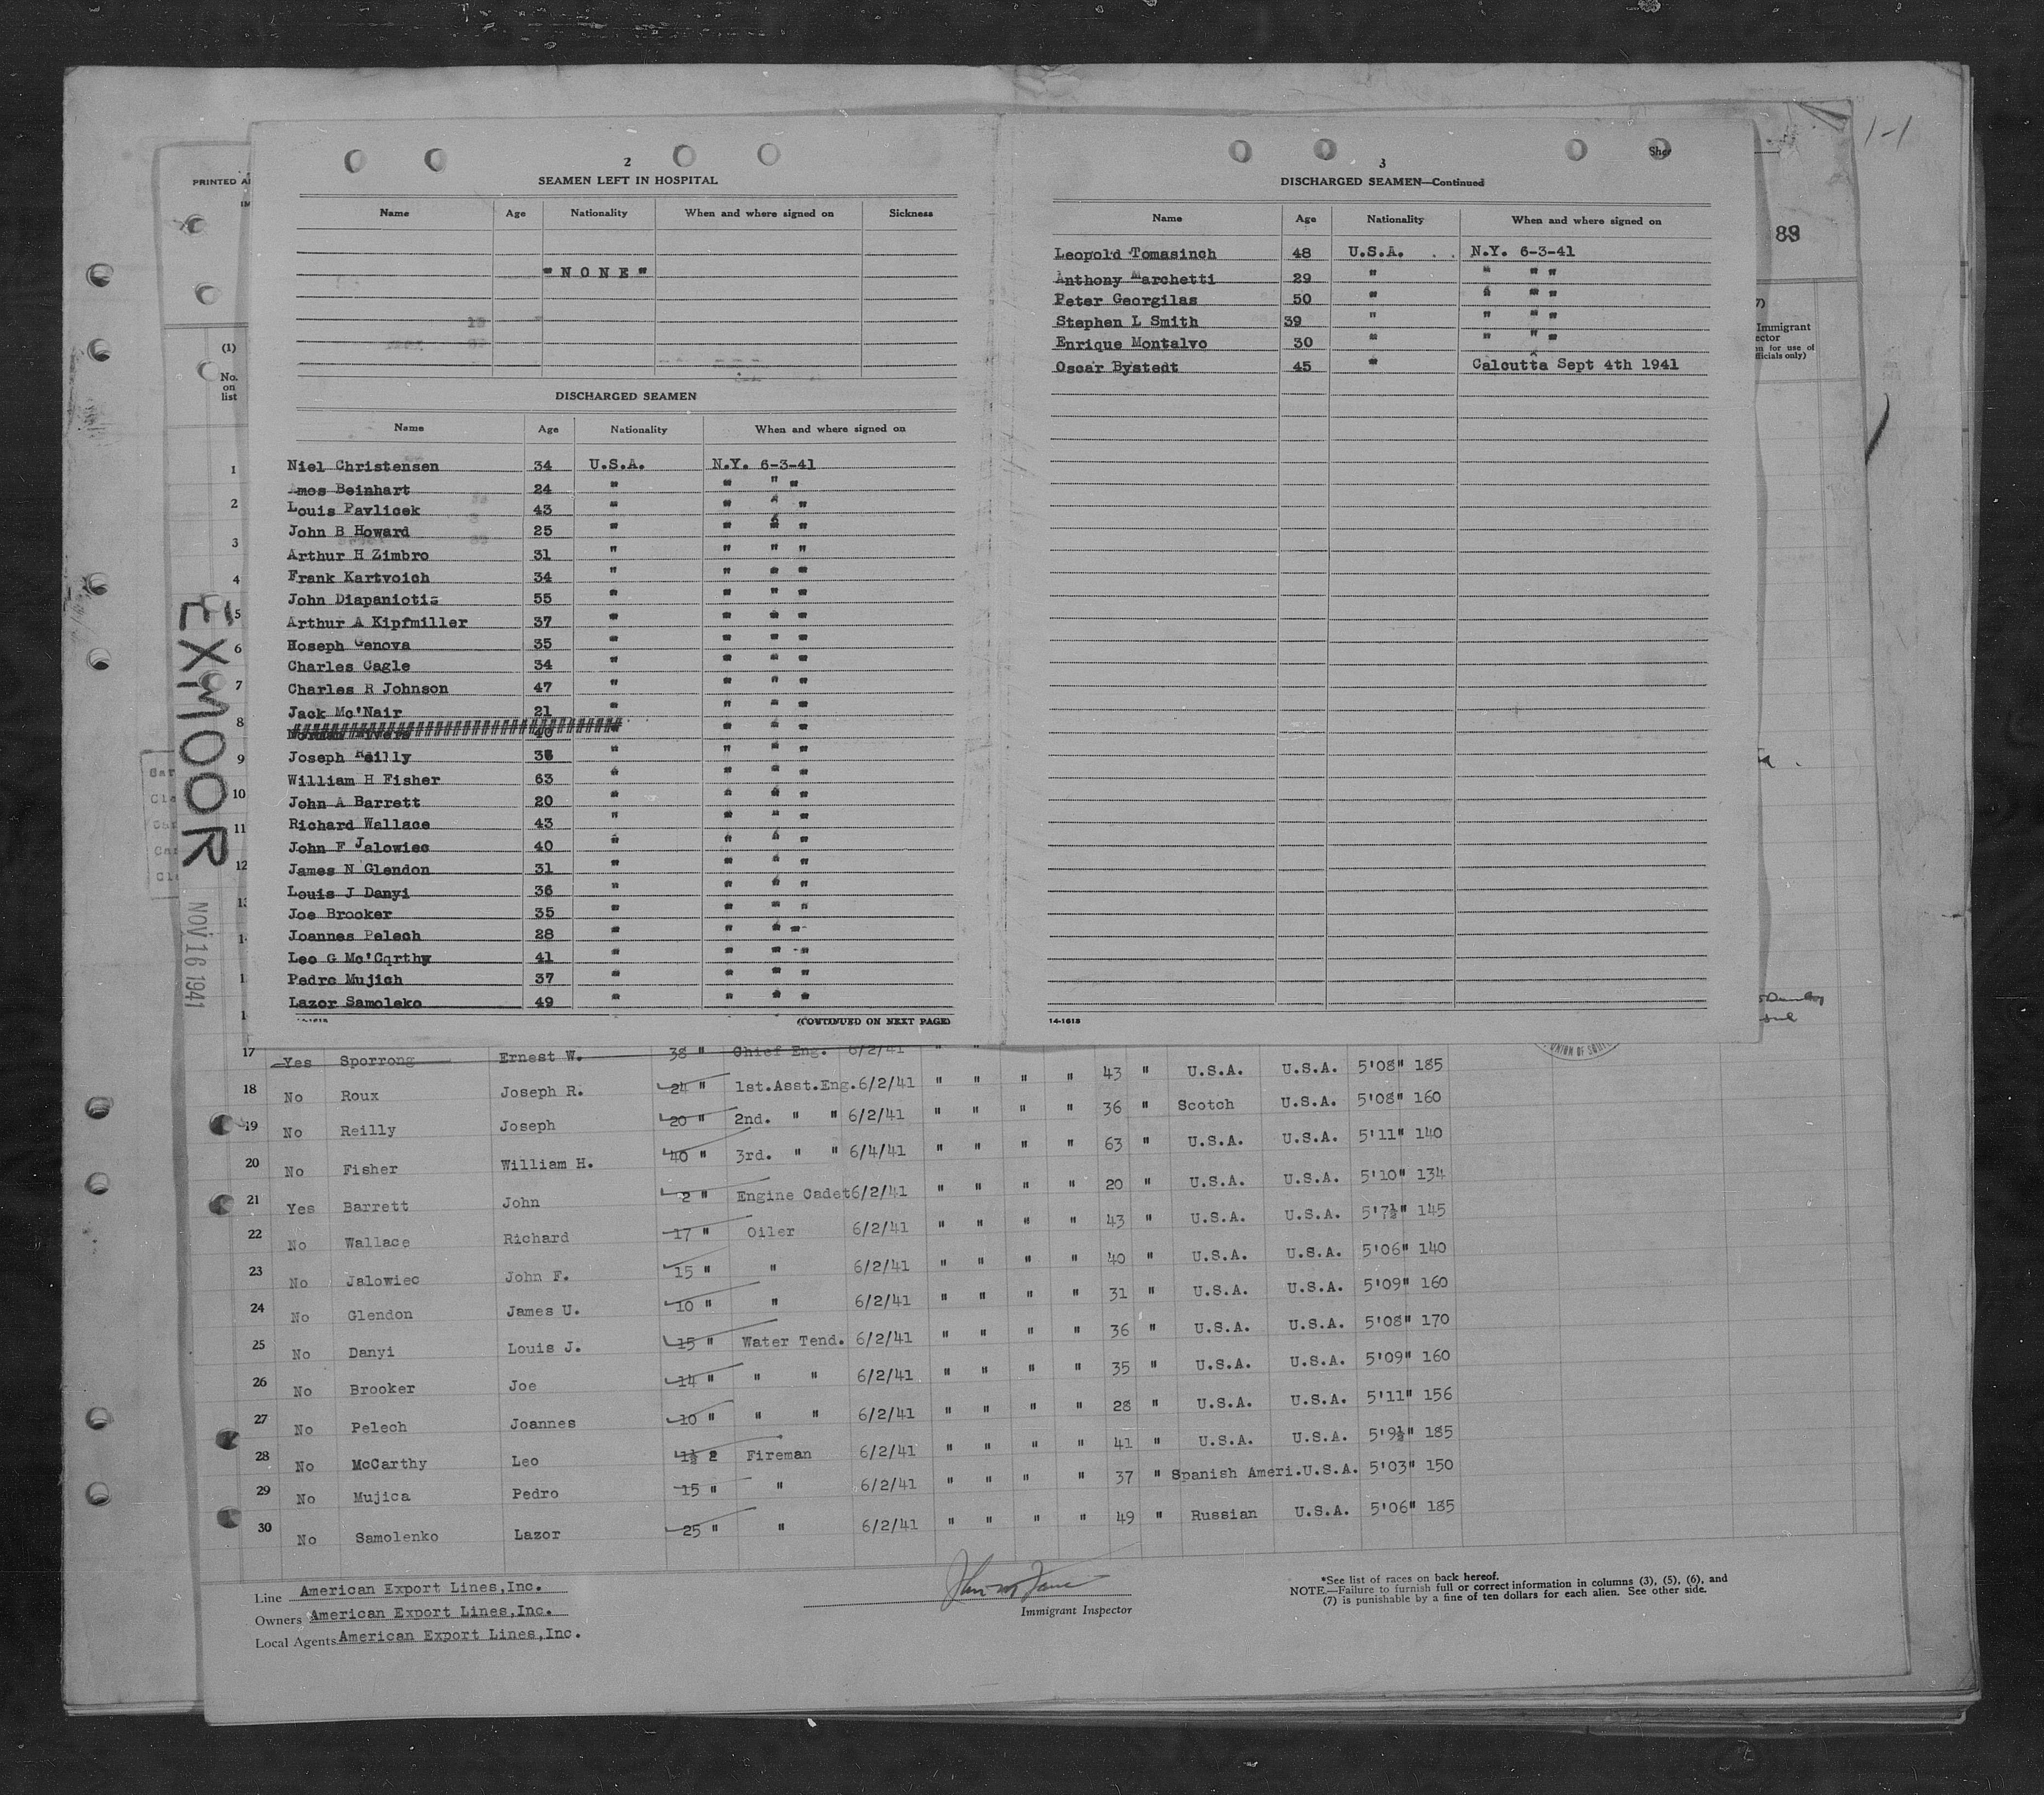 1-1
PRINTED
2
SEAMEN LEFT IN HOSPITAL
Name Age Nationality When and where signed on Sickness
"NONE"
DISCHARGED SEAMEN
Name Age Nationality When and where signed on
Niel Christensen 34 U.S.A. N.Y. 6-3-41
mos Beinhart 24 " " " "
Louis Pavlicek 43 " " " "
John B Howard 25 " " " "
Arthur H Zimbro 31 " " " "
Frank Kartvoich 34 " " " "
John Diapaniotis 55 " " " "
Arthur A Kipfmiller 37 " " " "
Hoseph Genova 35 " " " "
Charles Cagle 34 " " " "
Charles R Johnson 47 " " " "
Jack Mc'Nair 21 " " " "
40 " " "
Joseph Reilly 36 " " " "
William H Fisher 63 " " " "
John A Barrett 20 " " " "
Richard Wallace 43 " " " "
John F Jalowiec 40 " " " "
James N Glendon 31 " " " "
Louis J Danyi 36 " " " "
Joe Brooker 35 " " " "
Joannes Pelech 28 " " " "
Leo G Mc'Cqrthy 41 " " " "
Pedro Mujich 37 " " " "
Lazor Samoleko 49 " " " "
(CONTINUED ON NEXT PAGE)
3
DISCHARGED SEAMEN—Continued
Name Age Nationality When and where signed on
Leopold Tomasinch 48 U.S.A. N.Y. 6-3-41
Anthony Marchetti 29 " " " "
Peter Georgilas 50 " " " "
Stephen L Smith 39 " " " "
Enrique Montalvo 30 " " " "
Oscar Bystedt 45 " Calcutta Sept 4th 1941
14-1613
(1)
No.
on
list
1
2
3
4
5
6
7
8
9
10
11
12
EXMOOR
NOV 16 1941
Immigrant
17 Yes Sporrong Ernest W. 38 " Chief Eng. 6/2/41 " "
18 No Roux Joseph R. 24 " 1st.Asst.Eng. 6/2/41 " " " " 43 " U.S.A. U.S.A. 5'08" 185
19 No Reilly Joseph 20 " 2nd. " " 6/2/41 " " " " 36 " Scotch U.S.A. 5'08" 160
20 No Fisher William H. 40 " 3rd. " " 6/4/41 " " " " 63 " U.S.A. U.S.A. 5'11" 140
21 Yes Barrett John 2 " Engine Cadet 6/2/41 " " " " 20 " U.S.A. U.S.A. 5'10" 134
22 No Wallace Richard 17 " Oiler 6/2/41 " " " " 43 " U.S.A. U.S.A. 5'7½" 145
23 No Jalowiec John F. 15 " " 6/2/41 " " " " 40 " U.S.A. U.S.A. 5'06" 140
24 No Glendon James U. 10 " " 6/2/41 " " " " 31 " U.S.A. U.S.A. 5'09" 160
25 No Danyi Louis J. 15 " Water Tend. 6/2/41 " " " " 36 " U.S.A. U.S.A. 5'08" 170
26 No Brooker Joe 14 " " " 6/2/41 " " " " 35 " U.S.A. U.S.A. 5'09" 160
27 No Pelech Joannes 10 " " " 6/2/41 " " " " 28 " U.S.A. U.S.A. 5'11" 156
28 No McCarthy Leo 1½ 2 Fireman 6/2/41 " " " " 41 " U.S.A. U.S.A. 5'9½" 185
29 No Mujica Pedro 15 " " 6/2/41 " " " " 37 " Spanish Ameri. U.S.A. 5'03" 150
30 No Samolenko Lazor 25 " " 6/2/41 " " " " 49 " Russian U.S.A. 5'06" 185
Line American Export Lines,Inc.
Owners American Export Lines,Inc.
Local Agents American Export Lines,Inc.
Immigrant Inspector
*See list of races on back hereof.
NOTE.—Failure to furnish full or correct information in columns (3), (5), (6), and
(7) is punishable by a fine of ten dollars for each alien. See other side.